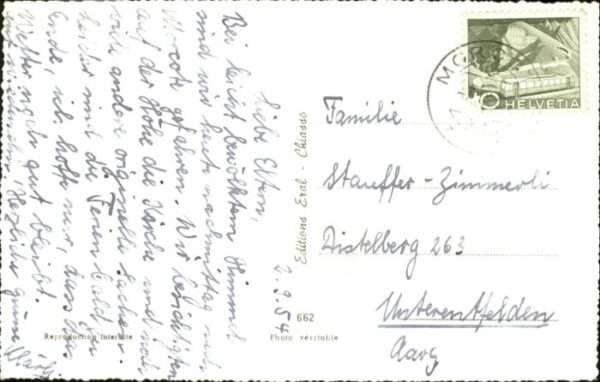 2.9.54
Liebe Eltern,
Bei leicht bewölktem Himmel
sind wir heute nachmittag nach
Morcote gefahren. Wir besichtigten
auf der Höhe die Kirche und noch
viele andere originelle Sachen.
Leider sind die Ferien bald zu
Ende, ich hoffe nur, dass das
Wetter noch gut bleibt.
Herzliche Grüsse
Editions Eral - Chiasso
662
Reproduction Interdite
Photo véritable
MORCOTE
10 HELVETIA
Familie
Stauffer-Zimmerli
Distelberg 263
Unterentfelden
Aarg